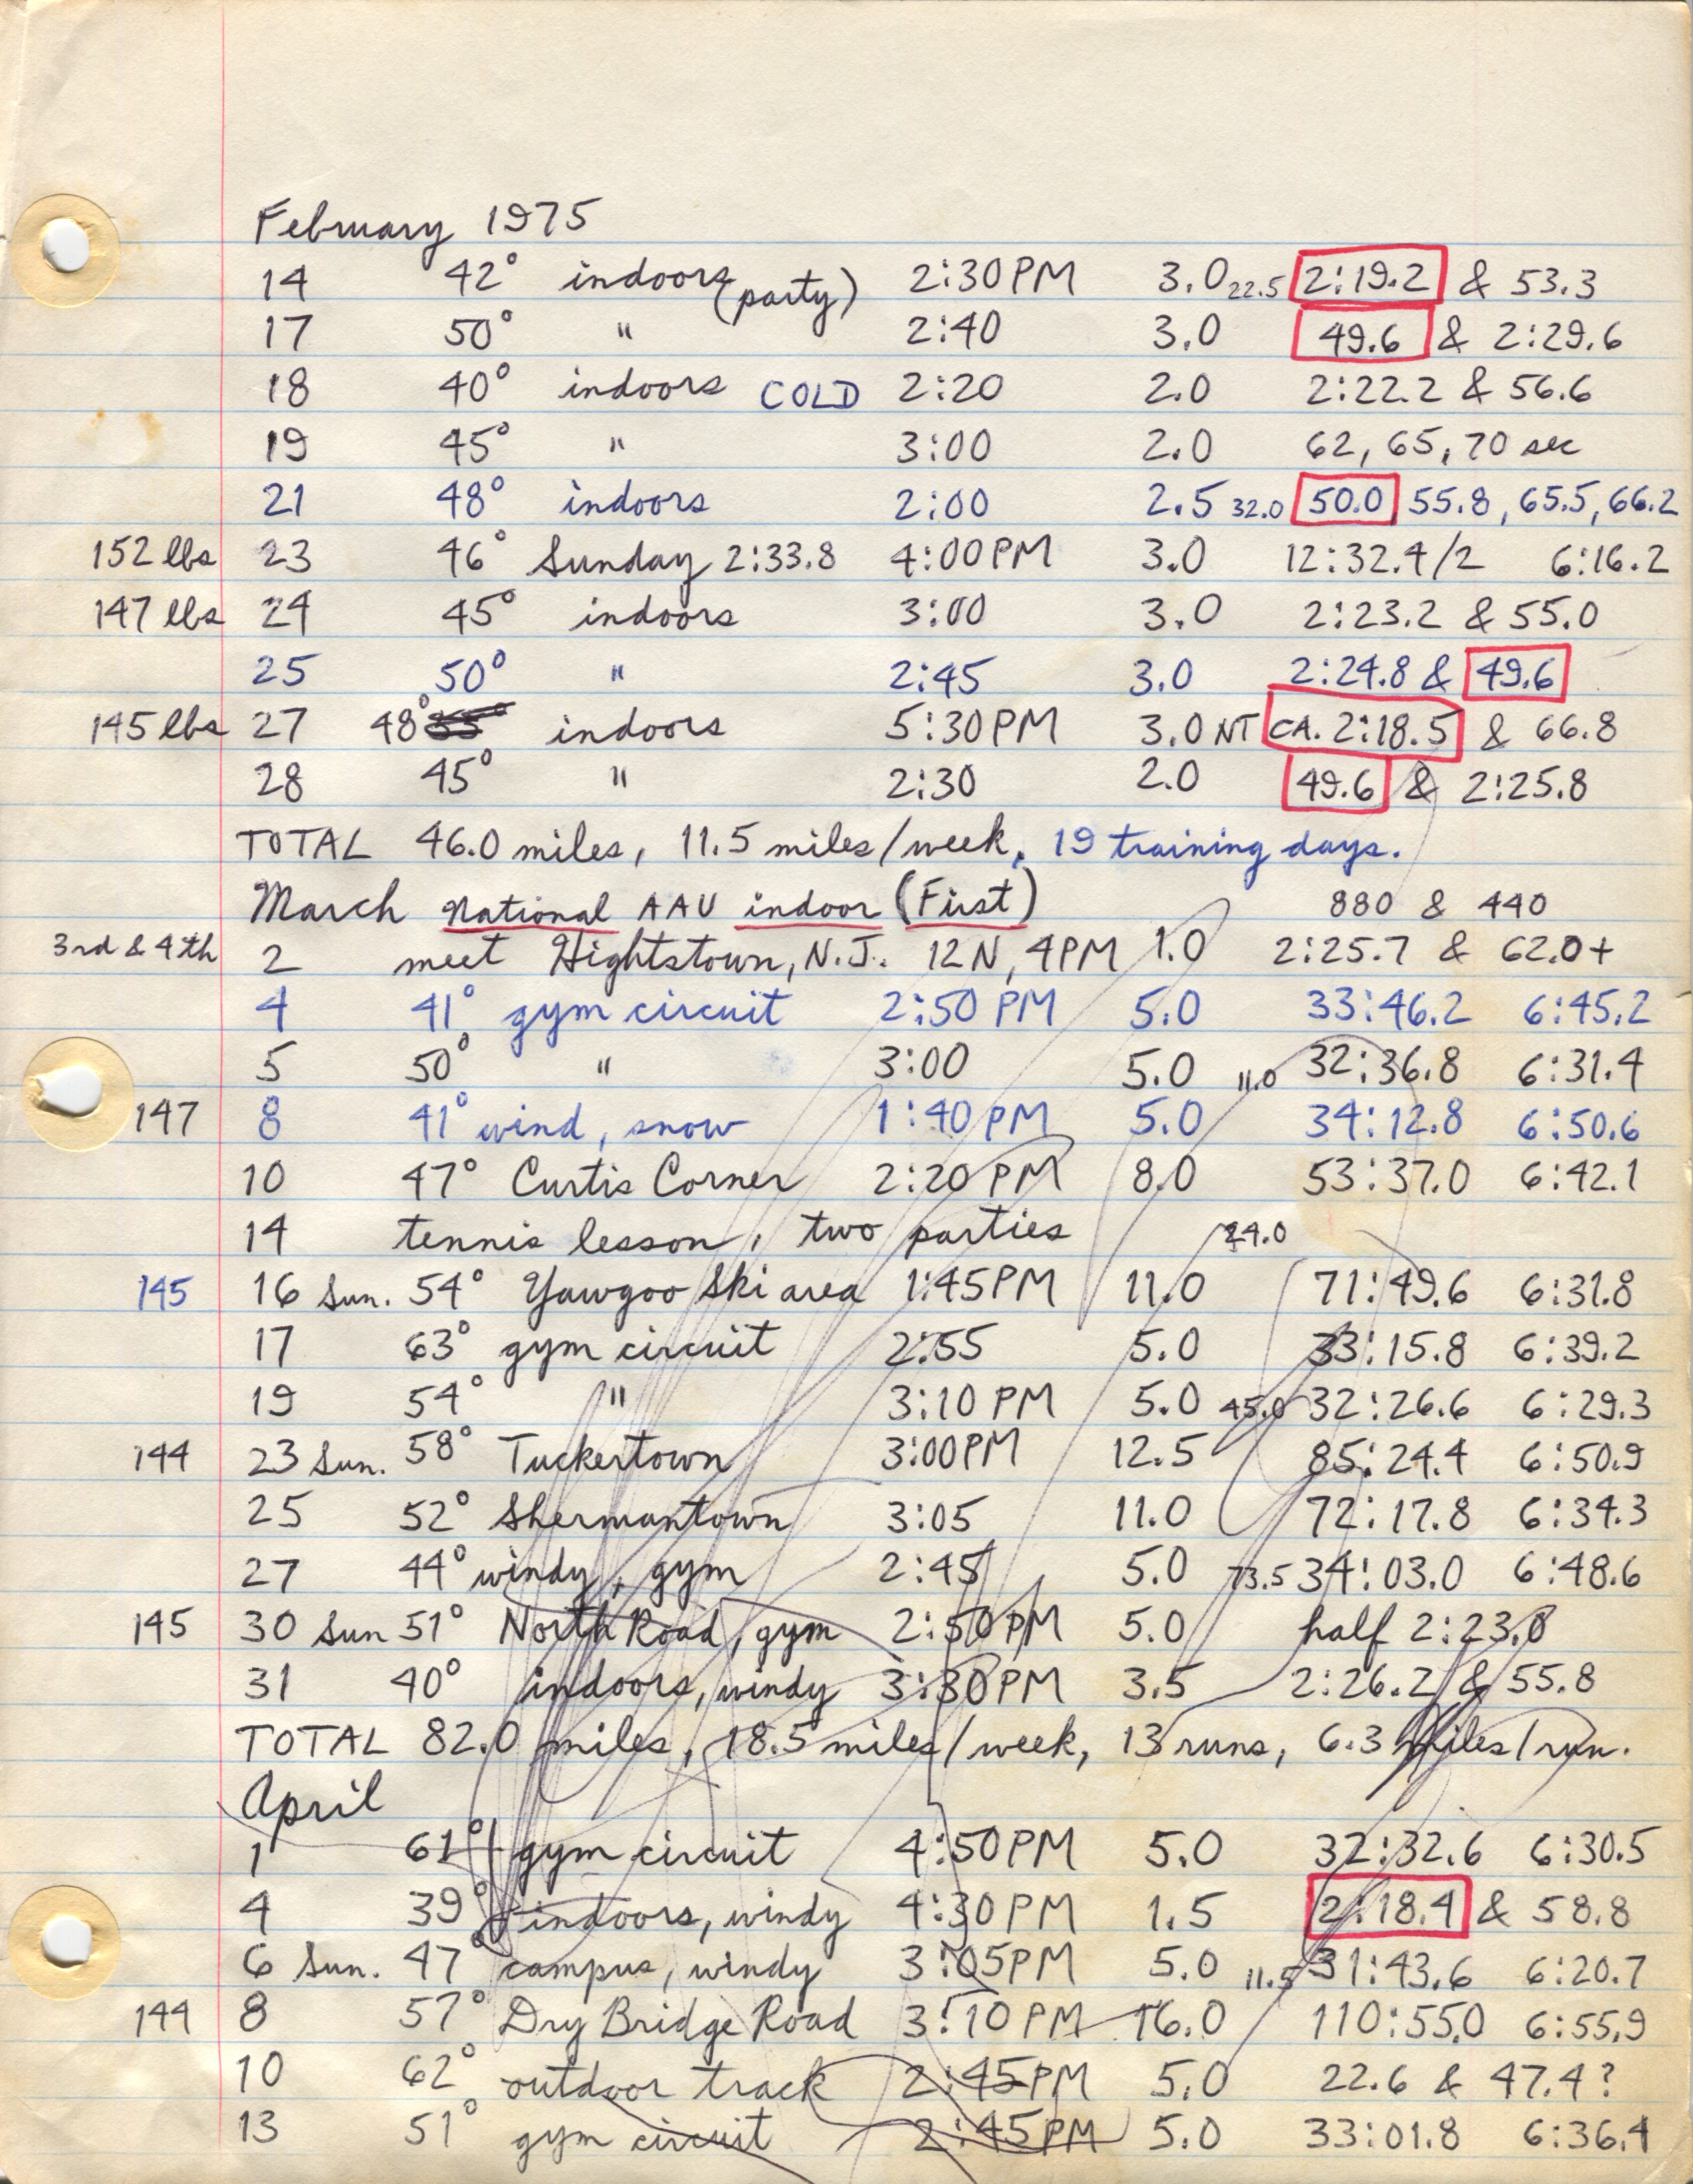 February 1975
14 42° indoors (party) 2:30PM 3.0 22.5 2:19.2 & 53.3
17 50° " 2:40 3.0 49.6 & 2:29.6
18 40° indoors COLD 2:20 2.0 2:22.2 & 56.6
19 45° " 3:00 2.0 62, 65, 70 sec
21 48° indoors 2:00 2.5 32.0 50.0 55.8, 65.5, 66.2
152 lbs 23 46° Sunday 2:33.8 4:00PM 3.0 12:32.4/2 6:16.2
147 lbs 24 45° indoors 3:00 3.0 2:23.2 & 55.0
25 50° " 2:45 3.0 2:24.8 & 49.6
145 lbs 27 48° indoors 5:30PM 3.0 NT CA. 2:18.5 & 66.8
28 45° " 2:30 2.0 49.6 & 2:25.8
TOTAL 46.0 miles, 11.5 miles/week, 19 training days.
March National AAU indoor (First) 880 & 440
3rd & 4th 2 meet Hightstown, N.J. 12N, 4PM 1.0 2:25.7 & 62.0+
4 41° gym circuit 2:50 PM 5.0 33:46.2 6:45.2
5 50° " 3:00 5.0 11.0 32:36.8 6:31.4
147 8 41° wind, snow 1:40 PM 5.0 34:12.8 6:50.6
10 47° Curtis Corner 2:20 PM 8.0 53:37.0 6:42.1
14 tennis lesson, two parties 24.0
145 16 Sun. 54° Yawgoo Ski area 1:45PM 11.0 71:49.6 6:31.8
17 63° gym circuit 2:55 5.0 33:15.8 6:39.2
19 54° " 3:10 PM 5.0 45.0 32:26.6 6:29.3
144 23 Sun. 58° Tuckertown 3:00PM 12.5 85:24.4 6:50.9
25 52° Shermantown 3:05 11.0 72:17.8 6:34.3
27 44° windy, gym 2:45 5.0 73.5 34:03.0 6:48.6
145 30 Sun 51° North Road, gym 2:50PM 5.0 half 2:23.0
31 40° indoors, windy 3:30PM 3.5 2:26.2 & 55.8
TOTAL 82.0 miles, 18.5 miles/week, 13 runs, 6.3 miles/run.
April
1 61° gym circuit 4:50PM 5.0 32:32.6 6:30.5
4 39° indoors, windy 4:30PM 1.5 2:18.4 & 58.8
6 Sun. 47° campus, windy 3:05PM 5.0 11.5 31:43.6 6:20.7
144 8 57° Dry Bridge Road 3:10 PM 16.0 110:55.0 6:55.9
10 62° outdoor track 2:45PM 5.0 22.6 & 47.4?
13 51° gym circuit 2:45PM 5.0 33:01.8 6:36.4